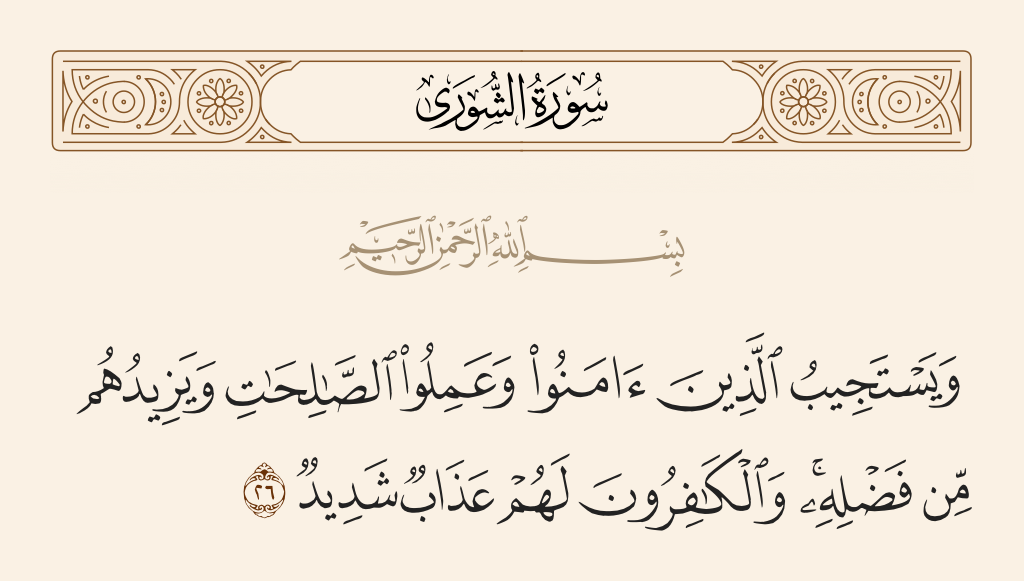 سُورَةُ الشُّورَىٰ
بِسْمِ ٱللَّهِ ٱلرَّحْمَٰنِ ٱلرَّحِيمِ
وَيَسْتَجِيبُ ٱلَّذِينَ ءَامَنُوا۟ وَعَمِلُوا۟ ٱلصَّـٰلِحَـٰتِ وَيَزِيدُهُم
مِّن فَضْلِهِۦۚ وَٱلْكَـٰفِرُونَ لَهُمْ عَذَابٌ شَدِيدٌ ٢٦